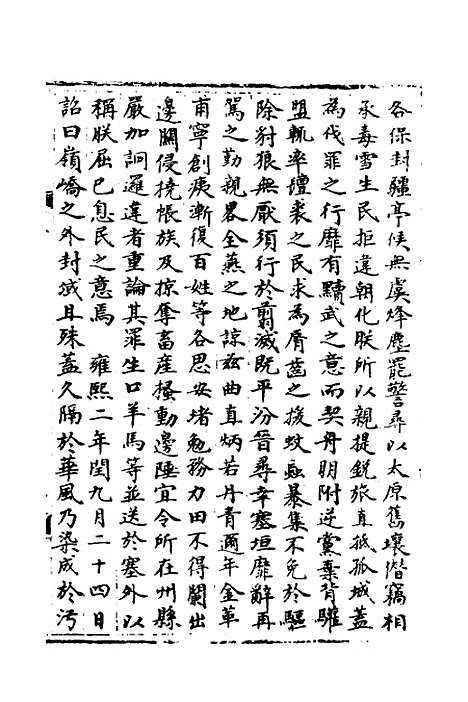 各保封疆亭候無虞烽塵罷警尋以太原舊壤僣竊相
承毒雪生民拒違朝化朕所以親提銳旅直抵孤城蓋
為伐罪之行靡有黷武之意而契丹明附逆黨棄背驩
盟輒率氊裘之民求為脣齒之援蚊蝱暴集不免於驅
除豺狼無厭須行於翦滅既平汾晉尋幸塞垣靡辭再
駕之勤親畧全燕之地諒兹曲直炳若丹青邇年金革
甫寧創痍漸復百姓等各思安堵勉務力田不得闌出
邊關侵撓帳族及掠奪畜産搔動邊陲宜令所在州縣
嚴加詗邏違者重論其罪生口羊馬等並送於塞外以
稱朕屈已息民之意焉　雍熙二年閏九月二十四日
詔曰嶺嶠之外封域且殊蓋久隔於華風乃染成於汚